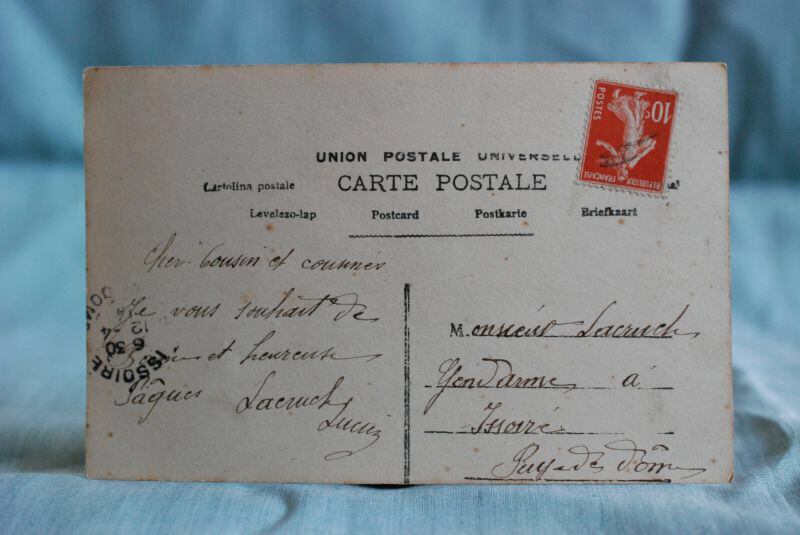 UNION POSTALE UNIVERSELL
Cartolina postale
CARTE POSTALE
Levelezo-lap
Postcard
Postkarte
Briefkaart
10c
POSTES
REPUBLIQUE FRANÇAISE
Cher Cousin et cousines
Je vous souhait de
et heureuse
Pâques Lacruch
Lucie
Monsieur Lacruch
Gendarme à
Issoire
Puy-de-dôme
ISSOIRE
6 30
12 -4